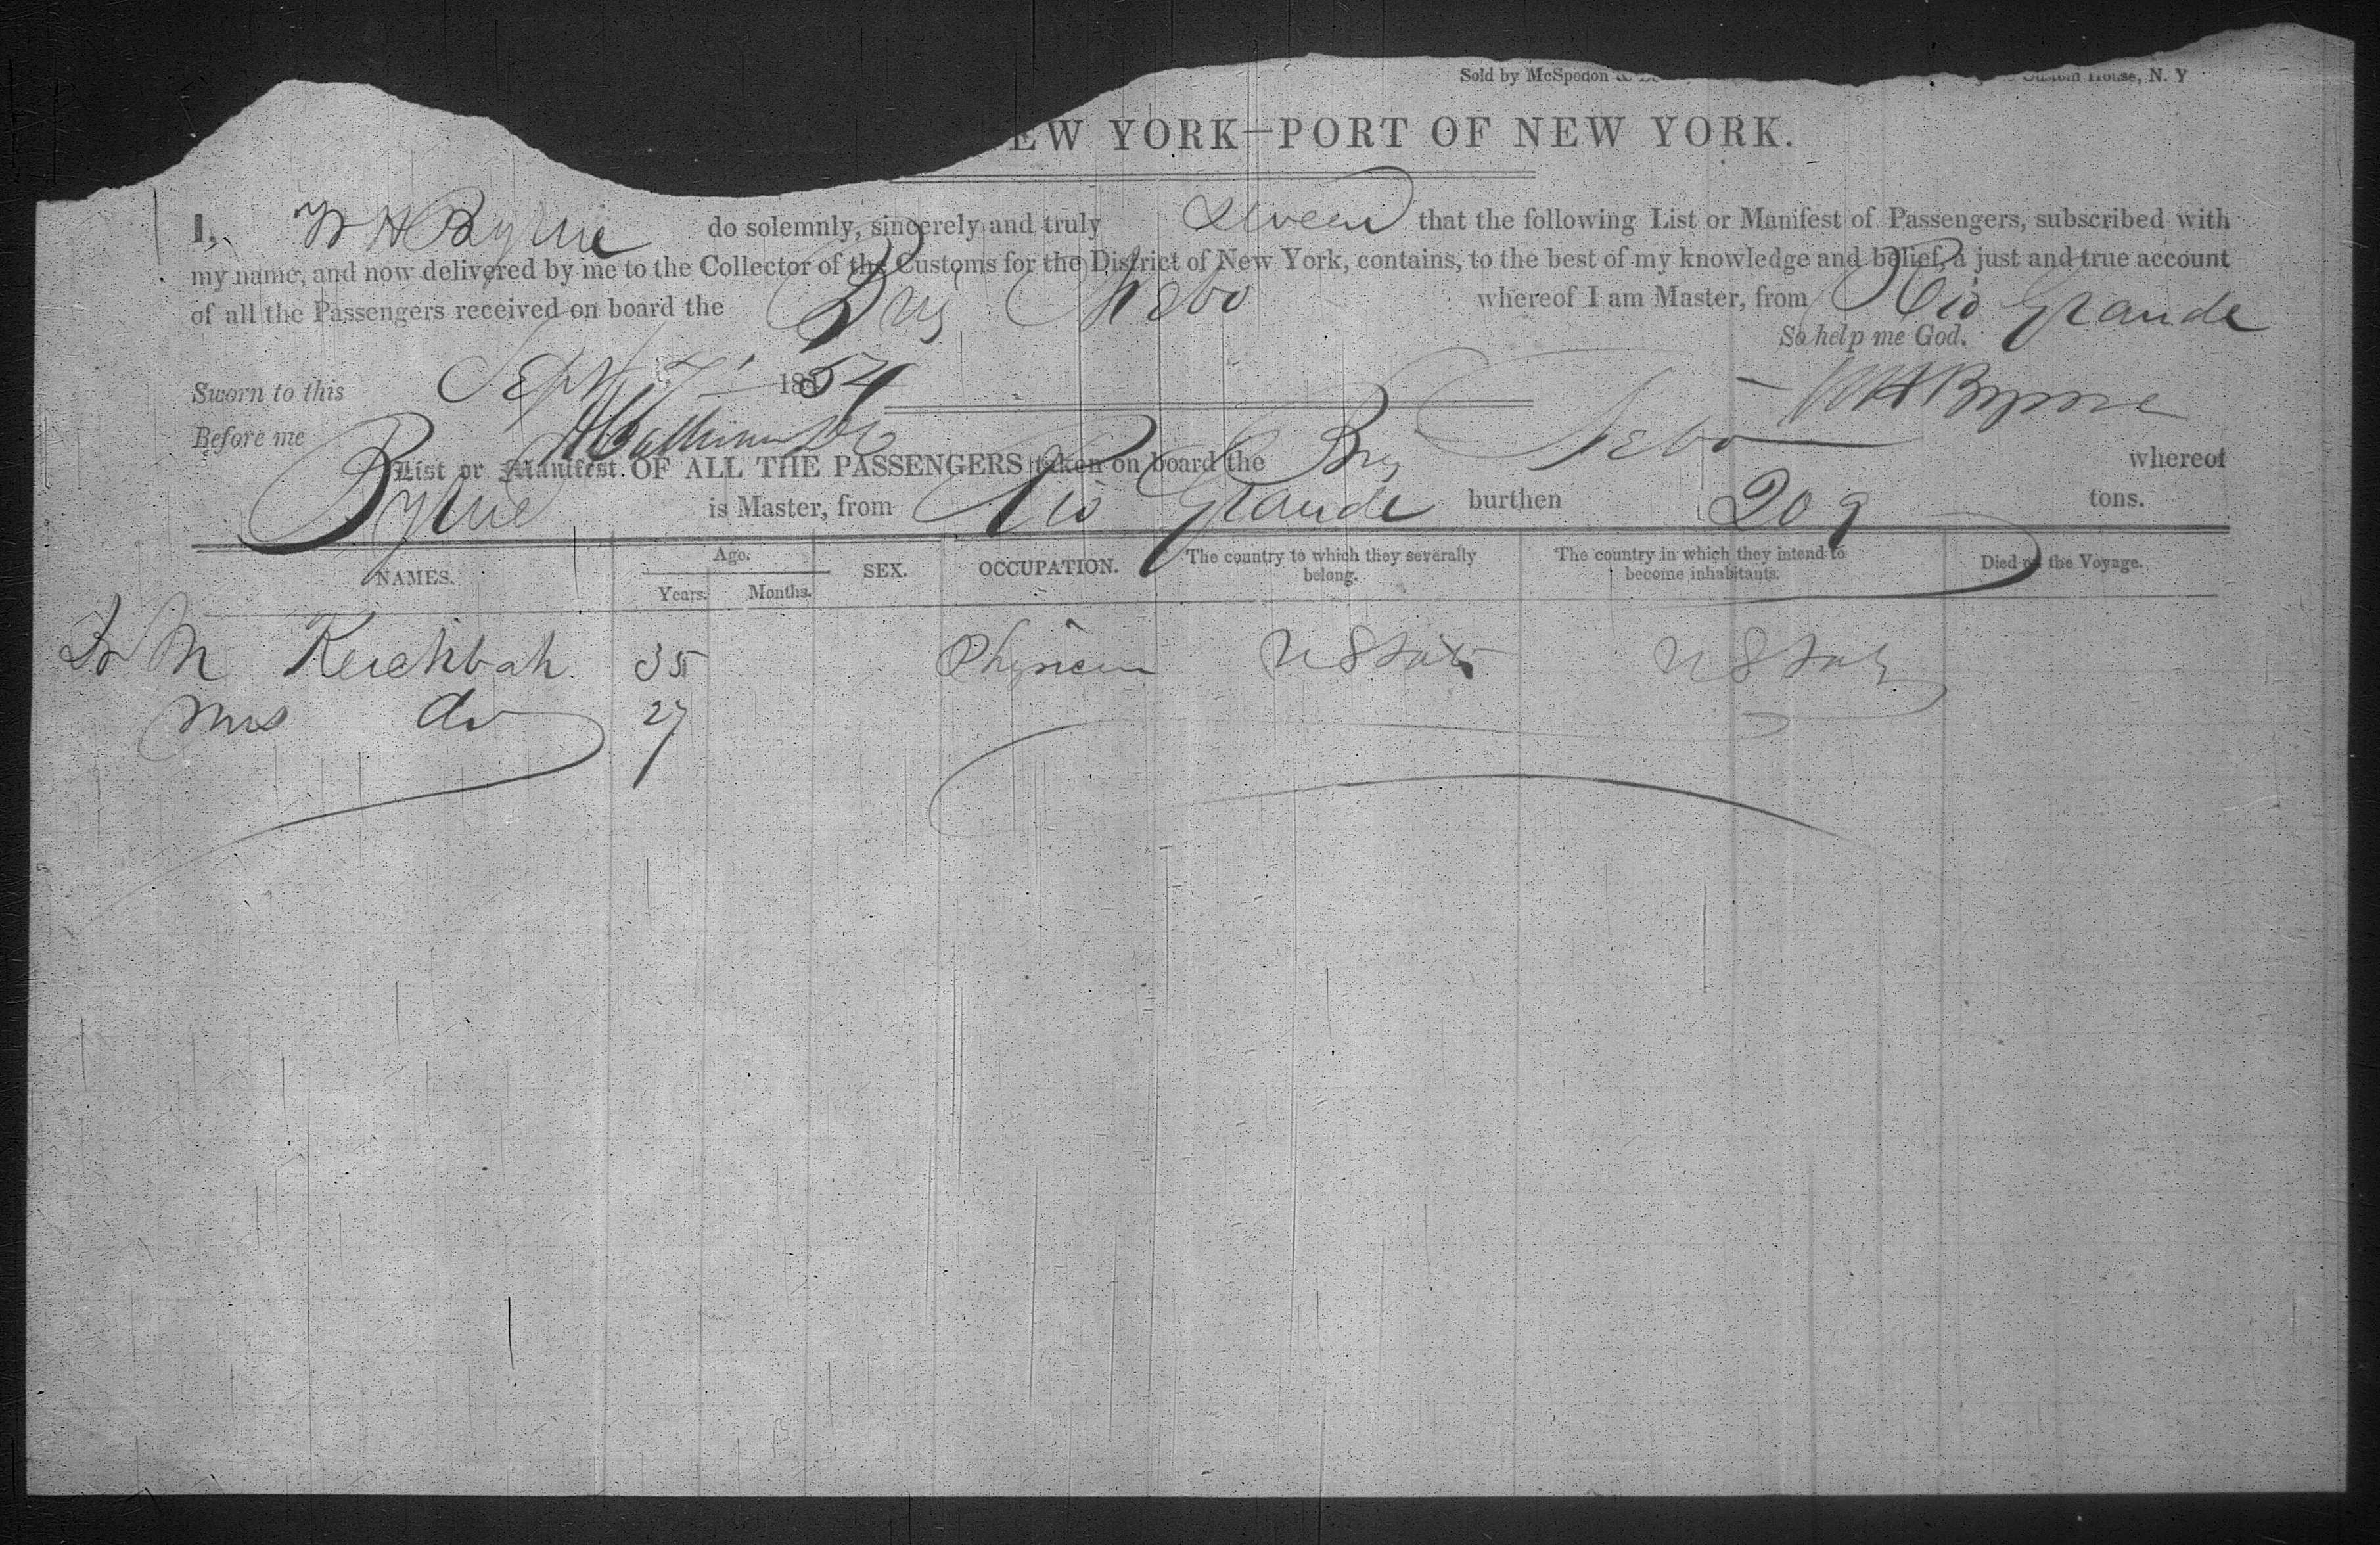 Sold by McSpedon & Custom House, N. Y
EW YORK—PORT OF NEW YORK.
I, W H Byrne do solemnly, sincerely and truly swear that the following List or Manifest of Passengers, subscribed with
my name, and now delivered by me to the Collector of the Customs for the District of New York, contains, to the best of my knowledge and belief, a just and true account
of all the Passengers received on board the Brig Nebo whereof I am Master, from Rio Grande
So help me God.
Sworn to this Sept 7 1854 W H Byrne
Before me
List or Manifest OF ALL THE PASSENGERS taken on board the Brig Nebo whereof
Byrne is Master, from Rio Grande burthen 209 tons.
NAMES. Age. Years. Months. SEX. OCCUPATION. The country to which they severally belong. The country in which they intend to become inhabitants. Died on the Voyage.
Dr M 35 Physician U States U States
Mrs Do 27